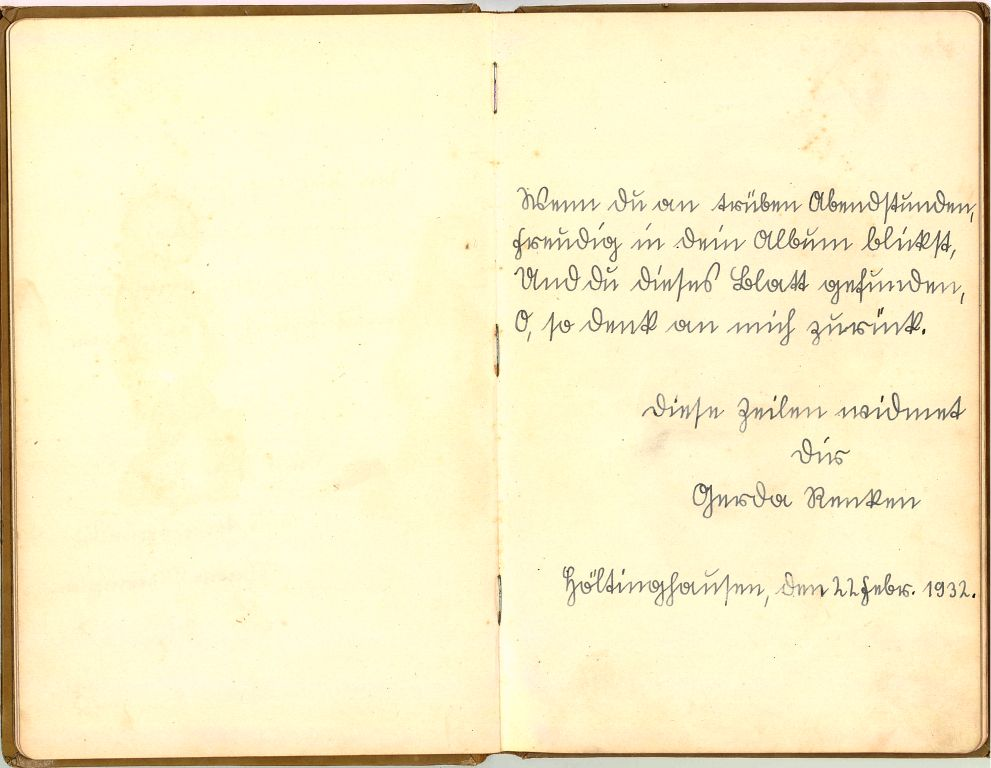 Wenn du an trüben Abendstunden,
freudig in dein Album blickst,
Und du dieses Blatt gefunden,
O, so denk an mich zurück.
Diese Zeilen widmet
Dir
Gerda Renken
Höltinghausen, den 22 Febr. 1932.